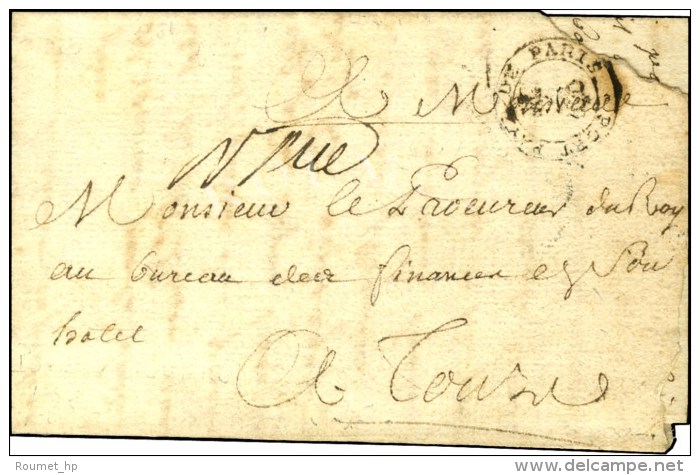 PORT PAYÉ DE PARIS
A Monsieur
Monsieur le Procureur du Roy
au bureau des finances en Son
hotel
A Tours
Roumet_hp
delcampe.net